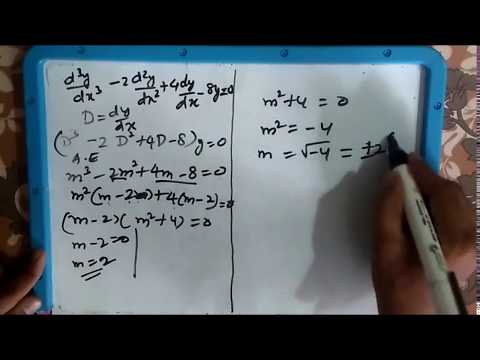 d³y/dx³ -2 d²y/dx² +4 dy/dx -8y=0
D = dy/dx
(D³ -2 D² +4D -8)y=0
A.E
m³ - 2m² + 4m - 8 = 0
m²(m-2) + 4(m-2)=0
(m-2)(m²+4)=0
m-2=0
m=2
m²+4 = 0
m² = -4
m = √-4 = ±2